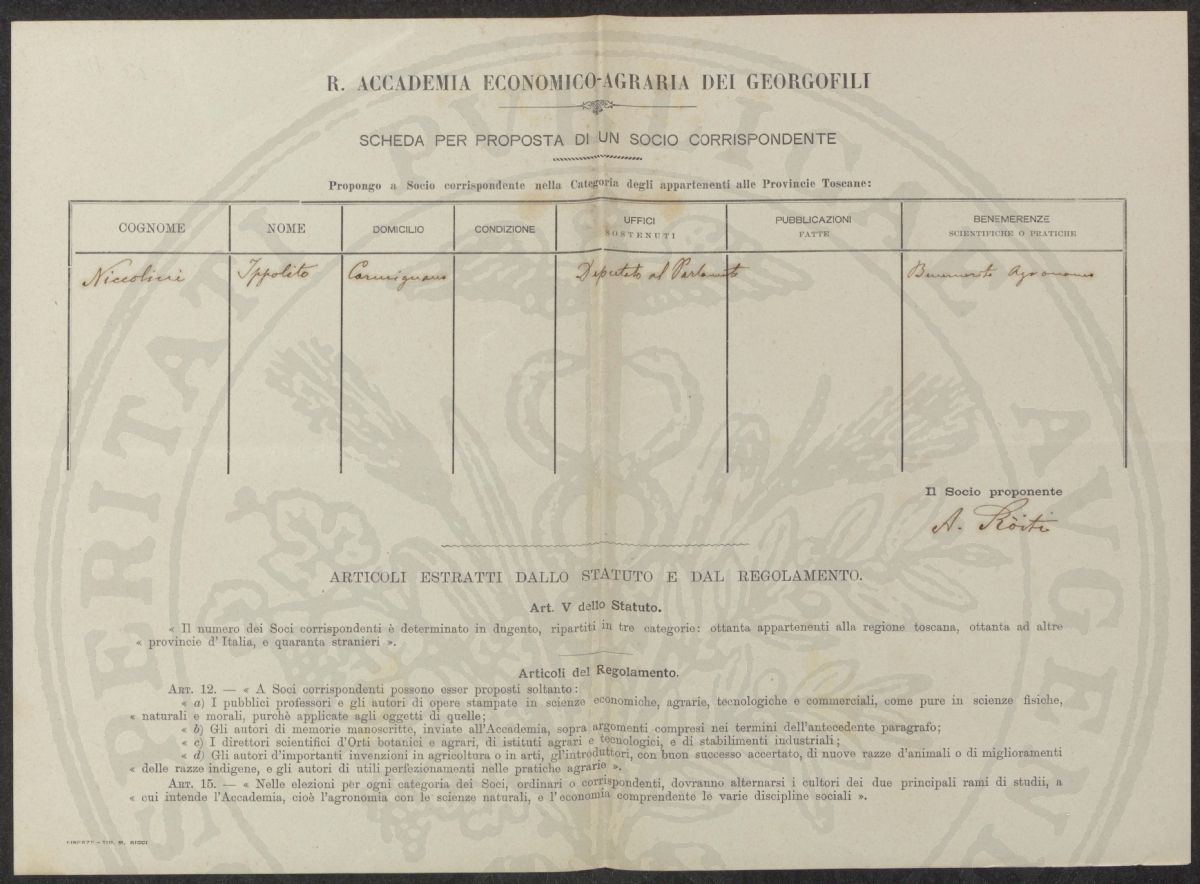 R. ACCADEMIA ECONOMICO-AGRARIA DEI GEORGOFILI
SCHEDA PER PROPOSTA DI UN SOCIO CORRISPONDENTE
Propongo a Socio corrispondente nella Categoria degli appartenenti alle Provincie Toscane:
COGNOME NOME DOMICILIO CONDIZIONE UFFICI SOSTENUTI PUBBLICAZIONI FATTE BENEMERENZE SCIENTIFICHE O PRATICHE
Niccolini Ippolito Carmignano Deputato al Parlamento Benemerito Agronomo
Il Socio proponente
A. Ròiti
ARTICOLI ESTRATTI DALLO STATUTO E DAL REGOLAMENTO.
Art. V dello Statuto.
« Il numero dei Soci corrispondenti è determinato in dugento, ripartiti in tre categorie: ottanta appartenenti alla regione toscana, ottanta ad altre
« provincie d'Italia, e quaranta stranieri ».
Articoli del Regolamento.
ART. 12. — « A Soci corrispondenti possono esser proposti soltanto:
« a) I pubblici professori e gli autori di opere stampate in scienze economiche, agrarie, tecnologiche e commerciali, come pure in scienze fisiche,
« naturali e morali, purchè applicate agli oggetti di quelle;
« b) Gli autori di memorie manoscritte, inviate all'Accademia, sopra argomenti compresi nei termini dell'antecedente paragrafo;
« c) I direttori scientifici d'Orti botanici e agrari, di istituti agrari e tecnologici, e di stabilimenti industriali;
« d) Gli autori d'importanti invenzioni in agricoltura o in arti, gl'introduttori, con buon successo accertato, di nuove razze d'animali o di miglioramenti
« delle razze indigene, e gli autori di utili perfezionamenti nelle pratiche agrarie ».
ART. 15. — « Nelle elezioni per ogni categoria dei Soci, ordinari o corrispondenti, dovranno alternarsi i cultori dei due principali rami di studii, a
« cui intende l'Accademia, cioè l'agronomia con le scienze naturali, e l'economia comprendente le varie discipline sociali ».
FIRENZE – TIP. M. RICCI